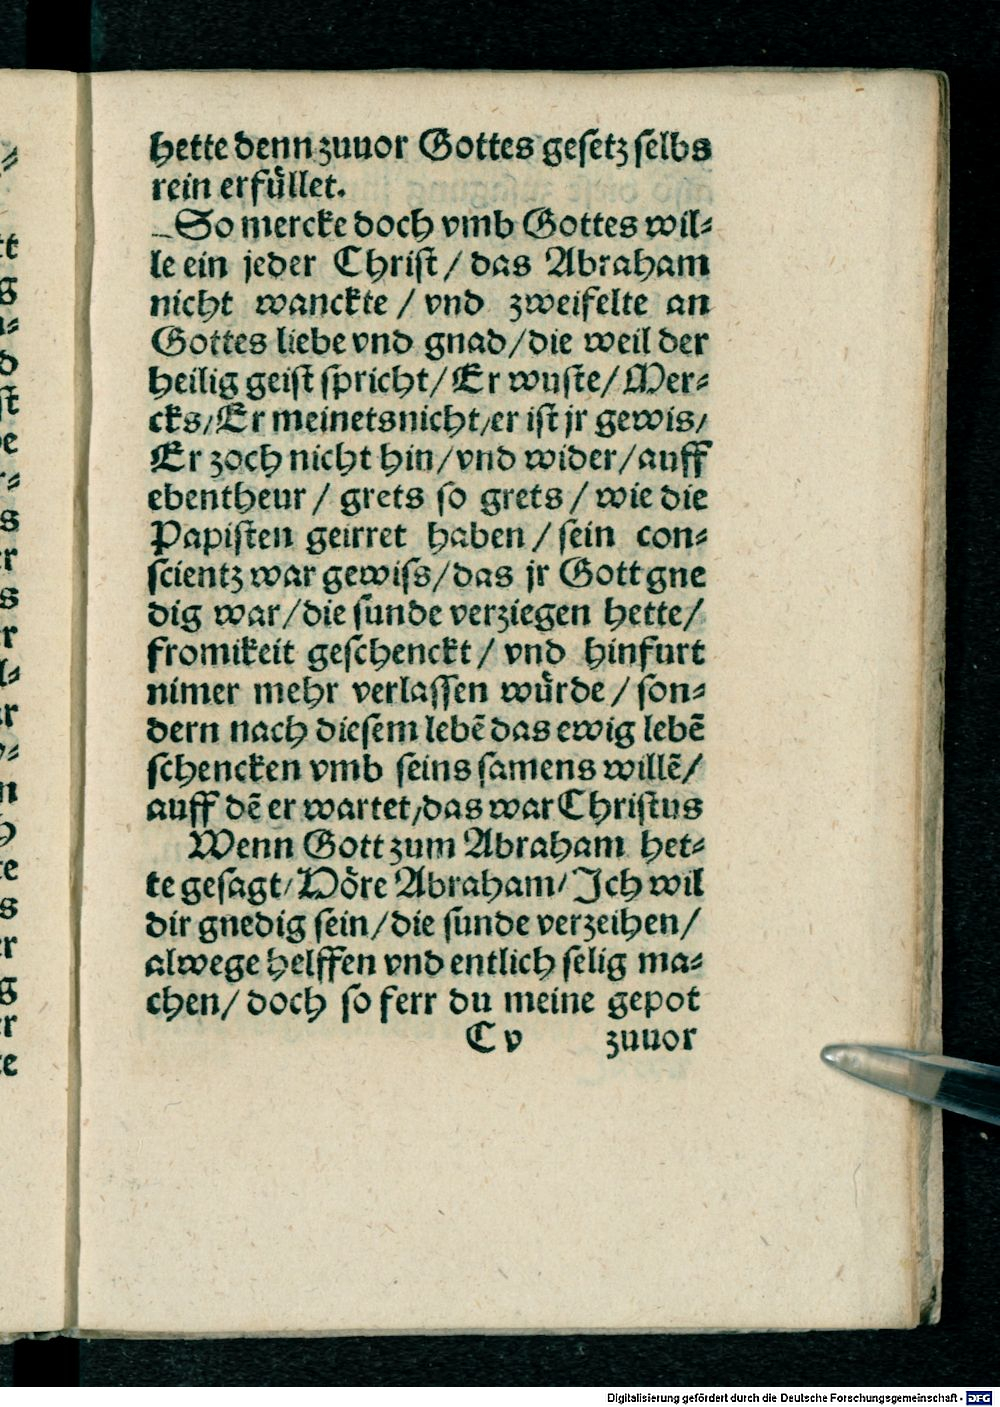 hette denn zuuor Gottes gesetz selbs
rein erfüllet.
So mercke doch vmb Gottes wil⸗
le ein jeder Christ / das Abraham
nicht wanckte / vnd zweifelte an
Gottes liebe vnd gnad / die weil der
heilig geist spricht / Er wuste / Mer⸗
cks / Er meinets nicht / er ist jr gewis /
Er zoch nicht hin / vnd wider / auff
ebentheur / grets so grets / wie die
Papisten geirret haben / sein con⸗
scientz war gewiss / das jr Gott gne
dig war / die sunde verziegen hette /
fromikeit geschenckt / vnd hinfurt
nimer mehr verlassen würde / son⸗
dern nach diesem lebẽ das ewig lebẽ
schencken vmb seins samens willẽ /
auff dẽ er wartet / das war Christus
Wenn Gott zum Abraham het⸗
te gesagt / Höre Abraham / Ich wil
dir gnedig sein / die sunde verzeihen /
alwege helffen vnd entlich selig ma⸗
chen / doch so ferr du meine gepot
C v zuuor
Digitalisierung gefördert durch die Deutsche Forschungsgemeinschaft - DFG